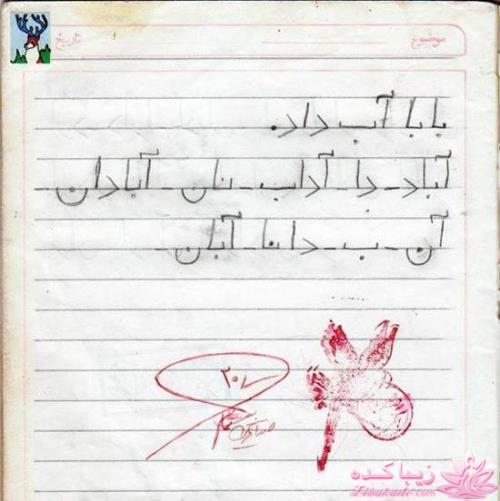 موضوع: تاریخ:
بابا آب داد.
آباد - دا - آداب - نان - آبادان -
آن - ب - دانا - آبان
۲۰
زیباکده